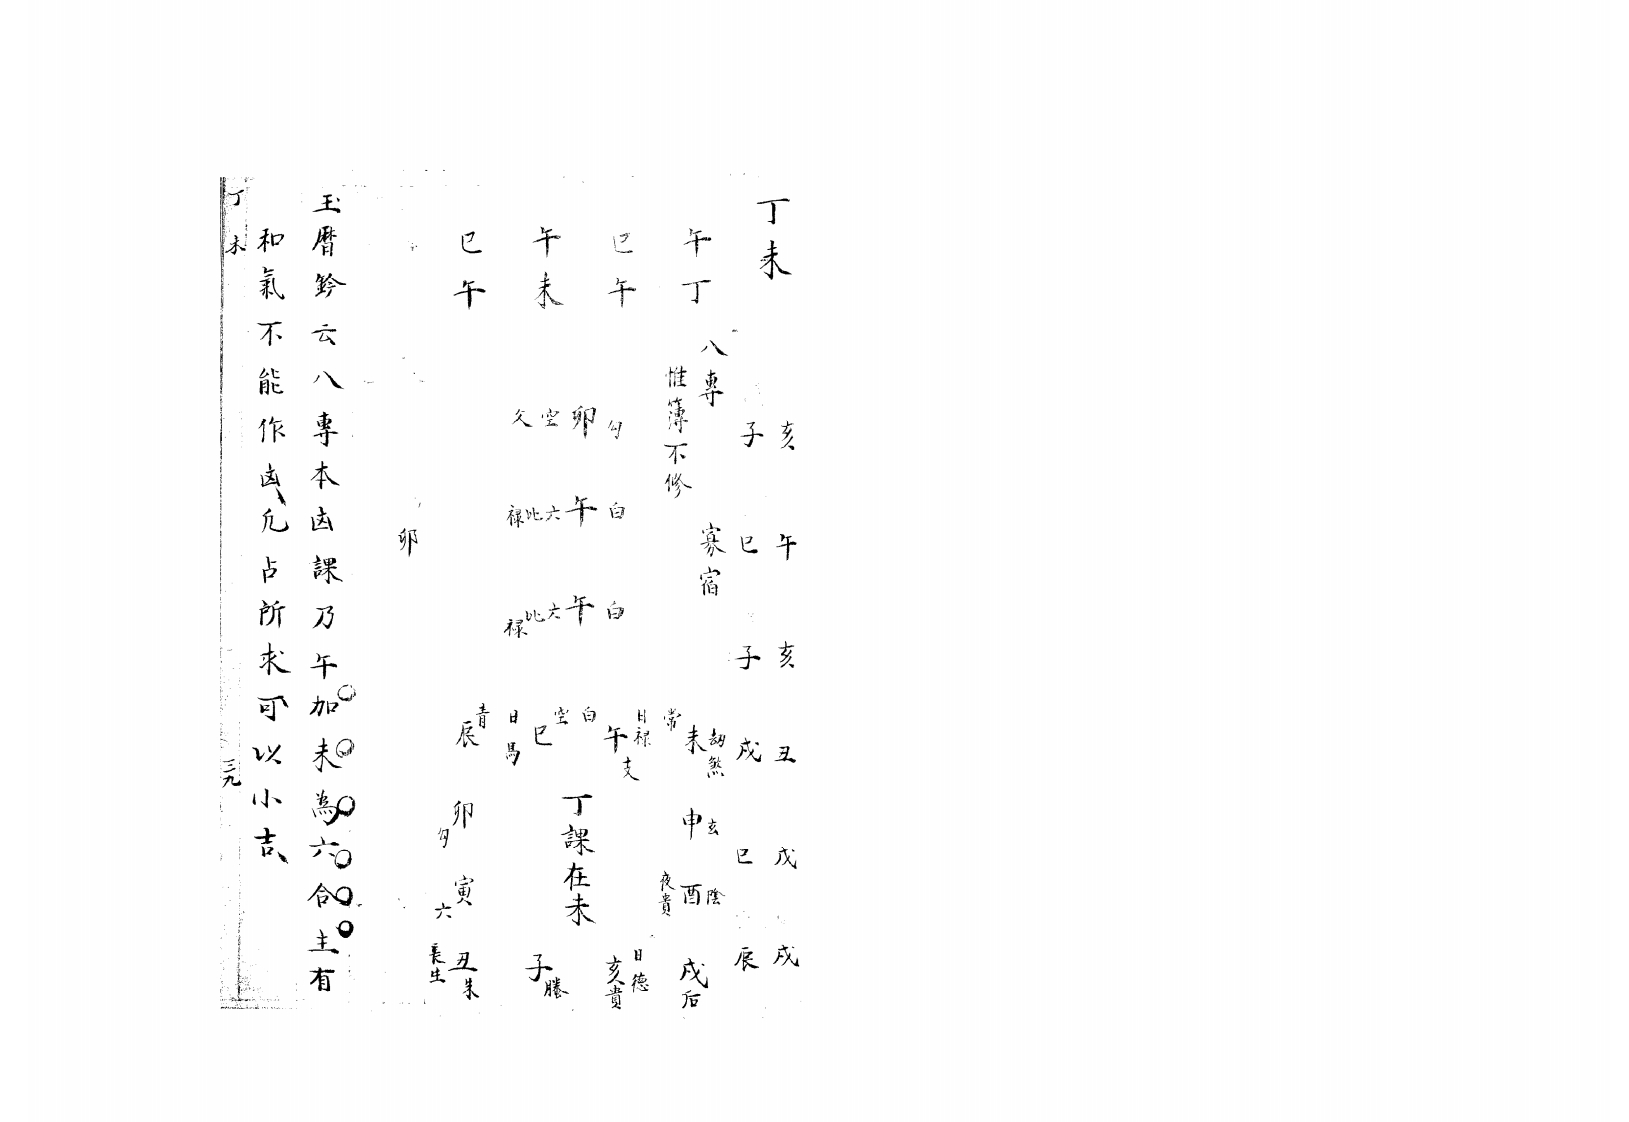 丁未
亥 午 亥 丑 戌 戌
子 巳 子 戌 巳 辰
八專 寡宿
惟簿不修
午丁
巳午
午未
巳午
勾卯空父
白午六比禄
白午六比禄
劫煞 未 常
玄 申
陰 酉 夜貴
戌后
日禄 午 支 白
空 巳 日馬
青 辰
卯 勾
寅 六
丑 朱 長生
子 螣
日德 亥貴
丁課在未
卯
玉曆鈐云八專本凶課乃午加未為六合主有
和氣不能作凶凡占所求可以小吉
丁未
三九